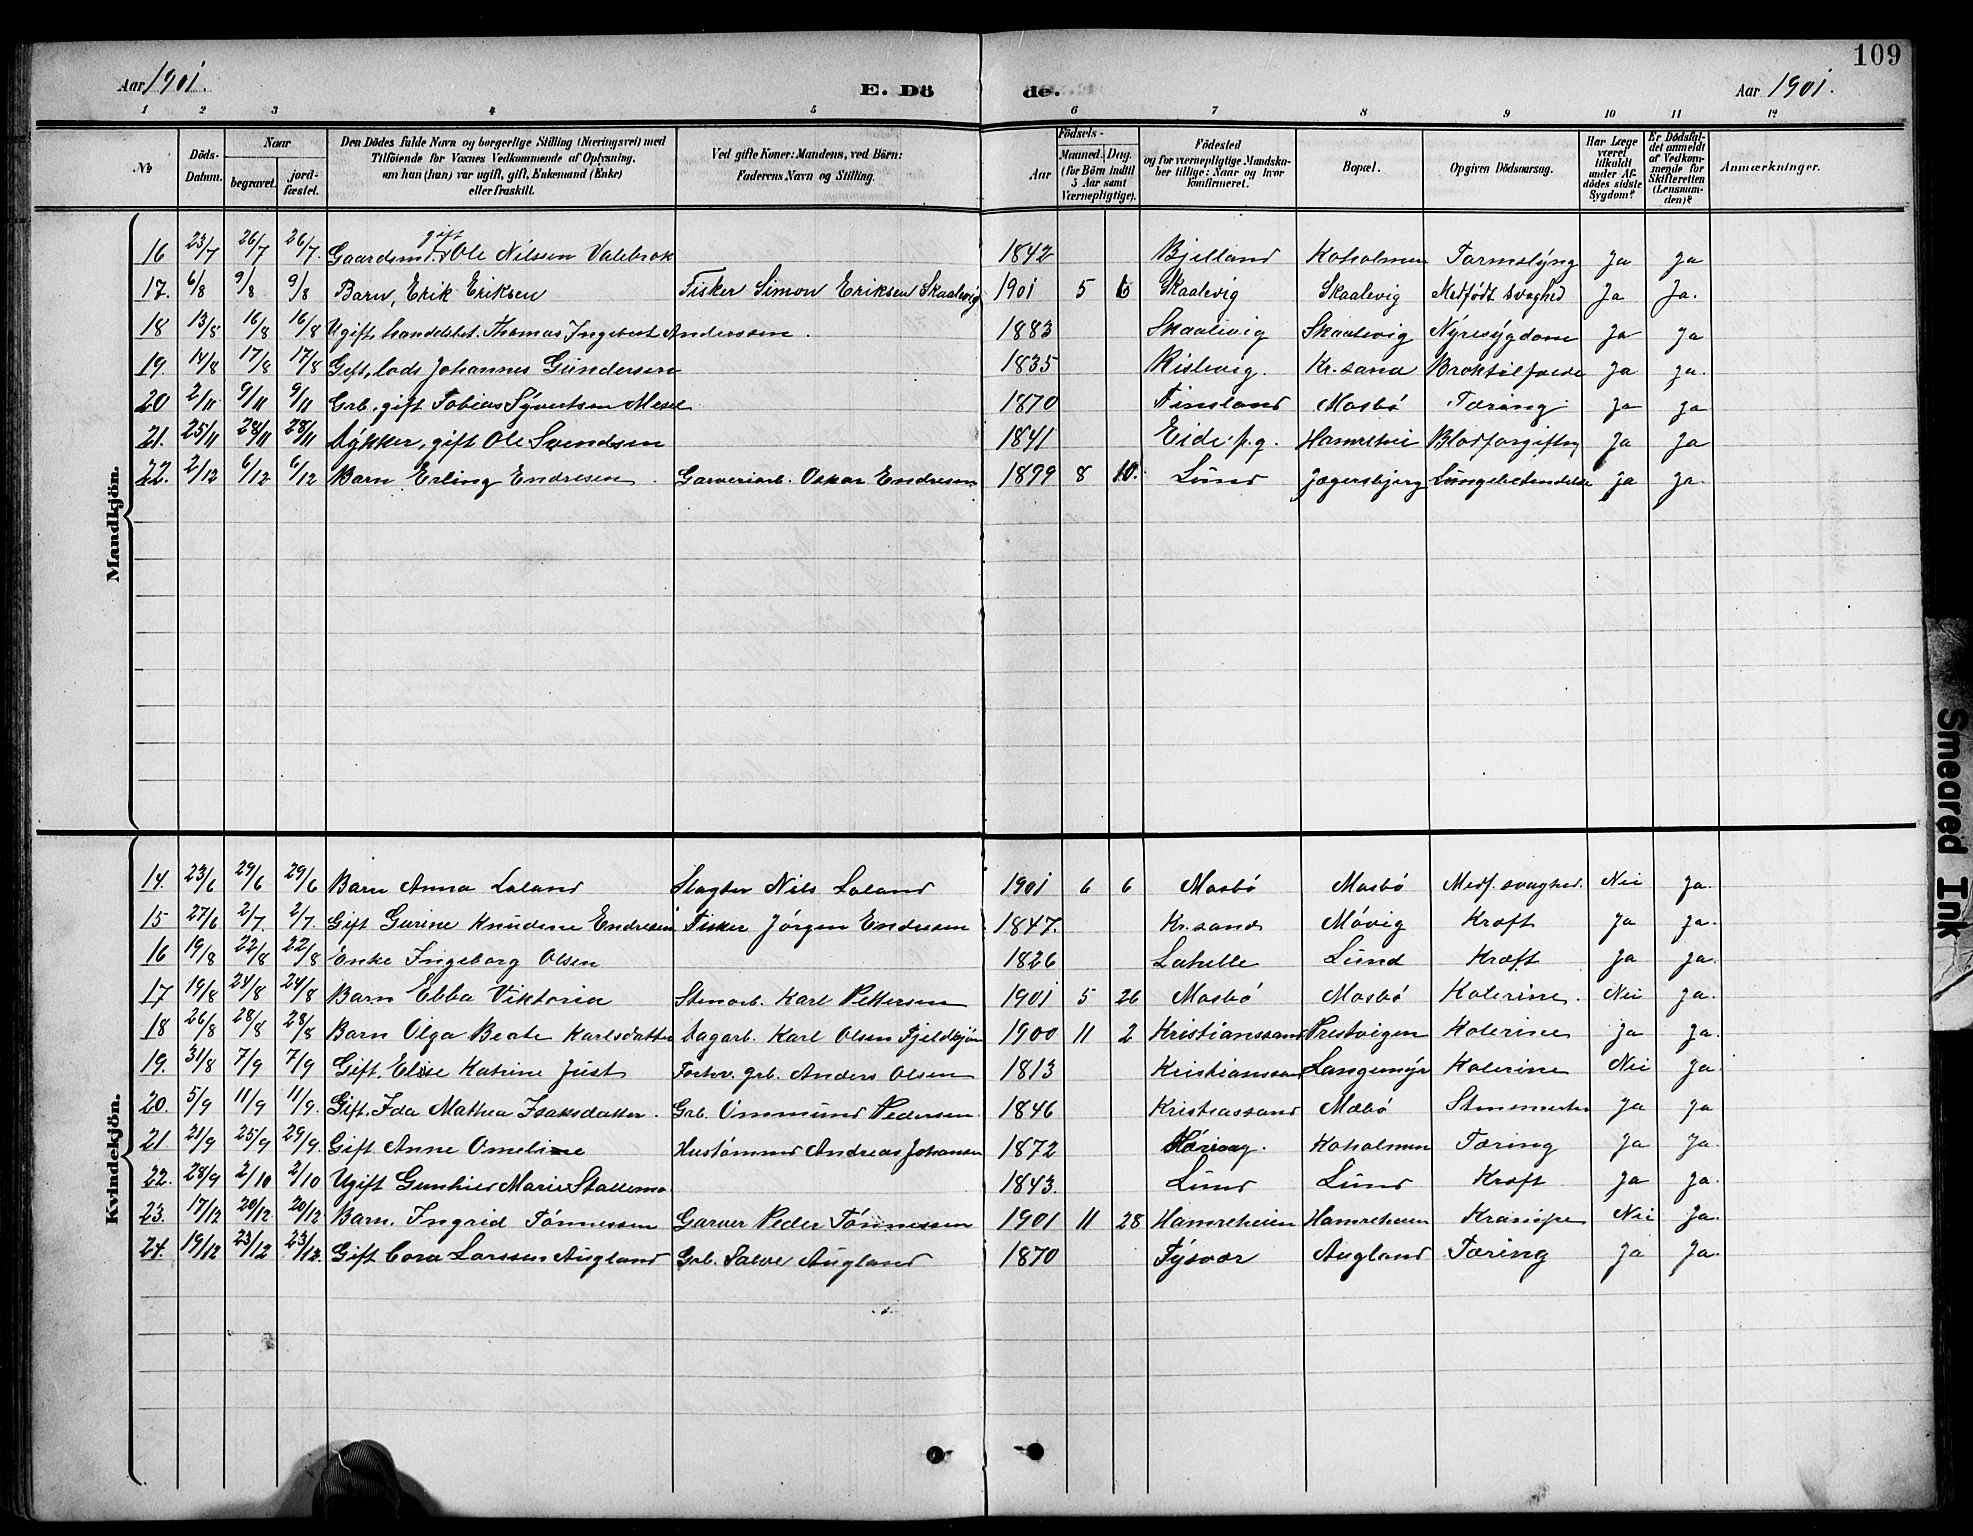 109
Aar 1901. E. Dö de. Aar 1901.
1 2 3 4 5 6 7 8 9 10 11 12
No Döds-Datum. Naar begravet. jordfæstet. Den Dödes fulde Navn og borgerlige Stilling (Næringsvei) med Tilföiende for Voxnes Vedkommende af Oplysning, om han (hun) var ugift, gift, Enkemand (Enke) eller fraskilt. Ved gifte Koner: Mandens, ved Börn: Faderens Navn og Stilling. Födsels- Aar Maaned. Dag. (for Börn indtil 5 Aar samt Værnepligtige). Födested og for værnepligtige Mandskaber tillige: Naar og hvor konfirmeret. Bopæl. Opgiven Dödsaarsag. Har Læge været tilkaldt under Afdödes sidste Sygdom? Er Dödsfaldet anmeldt af Vedkommende for Skifteretten (Lensmanden)? Anmærkninger.
Mandkjön.
16 23/7 26/7 26/7. Gaardsmd. gift Ole Nilsen Valebrok 1842 Bjelland Koholmen Tarmslyng Ja Ja
17. 6/8 9/8 9/8 Barn, Erik Eriksen Fisker Simon Eriksen Skaalevig 1901 5 6 Skaalevig Skaalevig Medfödt svaghed Ja Ja.
18 13/8 16/8 16/8 Ugift, handelsbt. Thomas Ingebert Anderssen. 1883 Skaalevig Skaalevig Nyresygdom Ja Ja
19. 14/8 17/8 17/8 Gift, lods Johannes Gundersen 1835 Risevig. Kr.sand Broktilfælde Ja Ja.
20 2/11 9/11 9/11 Grb. gift Tobias Syvertsen Mesel 1870 Finsland Mosbö Tæring Ja Ja
21. 25/11 28/11 28/11 Dykker, gift Ole Svendsen 1841 Eide p.g. Hamrehei Blodforgiftn Ja Ja
22. 2/12 6/12 6/12 Barn Erling Endresen Garveriarb. Oskar Endresen 1899 8 10. Lund Jegersbjerg Lungebetændelse Ja Ja.
Kvindekjön.
14. 23/6 29/6 29/6 Barn Anna Loland Slagter Nils Loland 1901 6 6 Mosbö Mosbö Medf. svaghed. Nei Ja.
15 27/6 2/7 2/7. Gift Gurine Knudene Endresen Fisker Jörgen Endresen 1847. Kr.sand Mövig Kræft Ja Ja.
16 19/8 22/8 22/8 Enke Ingeborg Olsen 1826 Lahelle Lund Kræft Ja Ja.
17 19/8 24/8 24/8 Barn Ebba Viktoria Stenarb. Karl Pettersen 1901 5 26 Mosbö Mosbö Kolerine. Nei Ja.
18 26/8 28/8 28/8 Barn Olga Beate Karlsdatter Dagarb. Karl Olsen Fjeldkjøn 1900 11 2 Kristianssand Prestvigen Kolerine Ja Ja.
19. 31/8 7/9 7/9 Gift. Elise Katrine Just Forhv. grb. Anders Olsen 1813 Kristianssan Langemyr Kolerine Nei Ja
20. 5/9 11/9 11/9. Gift. Ida Mathea Isaksdatter. Grb. Ommund Pedersen 1846 Kristiassand Mæbö Stensmerter Ja Ja
21. 21/9 25/9 29/9. Gift Anne Omeline Hustömmer Andreas Johansen 1872 Höivaag. Koholmen Tæring Ja Ja
22. 28/9 2/10 2/10 Ugift Gunhild Marie Stallemo 1843. Lund Lund Kræft Ja Ja.
23. 17/12 20/12 20/12 Barn. Ingrid Tönnessen Garver Peder Tönnessen 1901 11 28 Hamreheien Hamreheien Krampe Nei Ja.
24. 19/12 23/12 23/12. Gift Cora Larssen Augland Grb. Salve Augland 1870 Tysvær Augland Tæring Ja Ja.
Smeared Ink